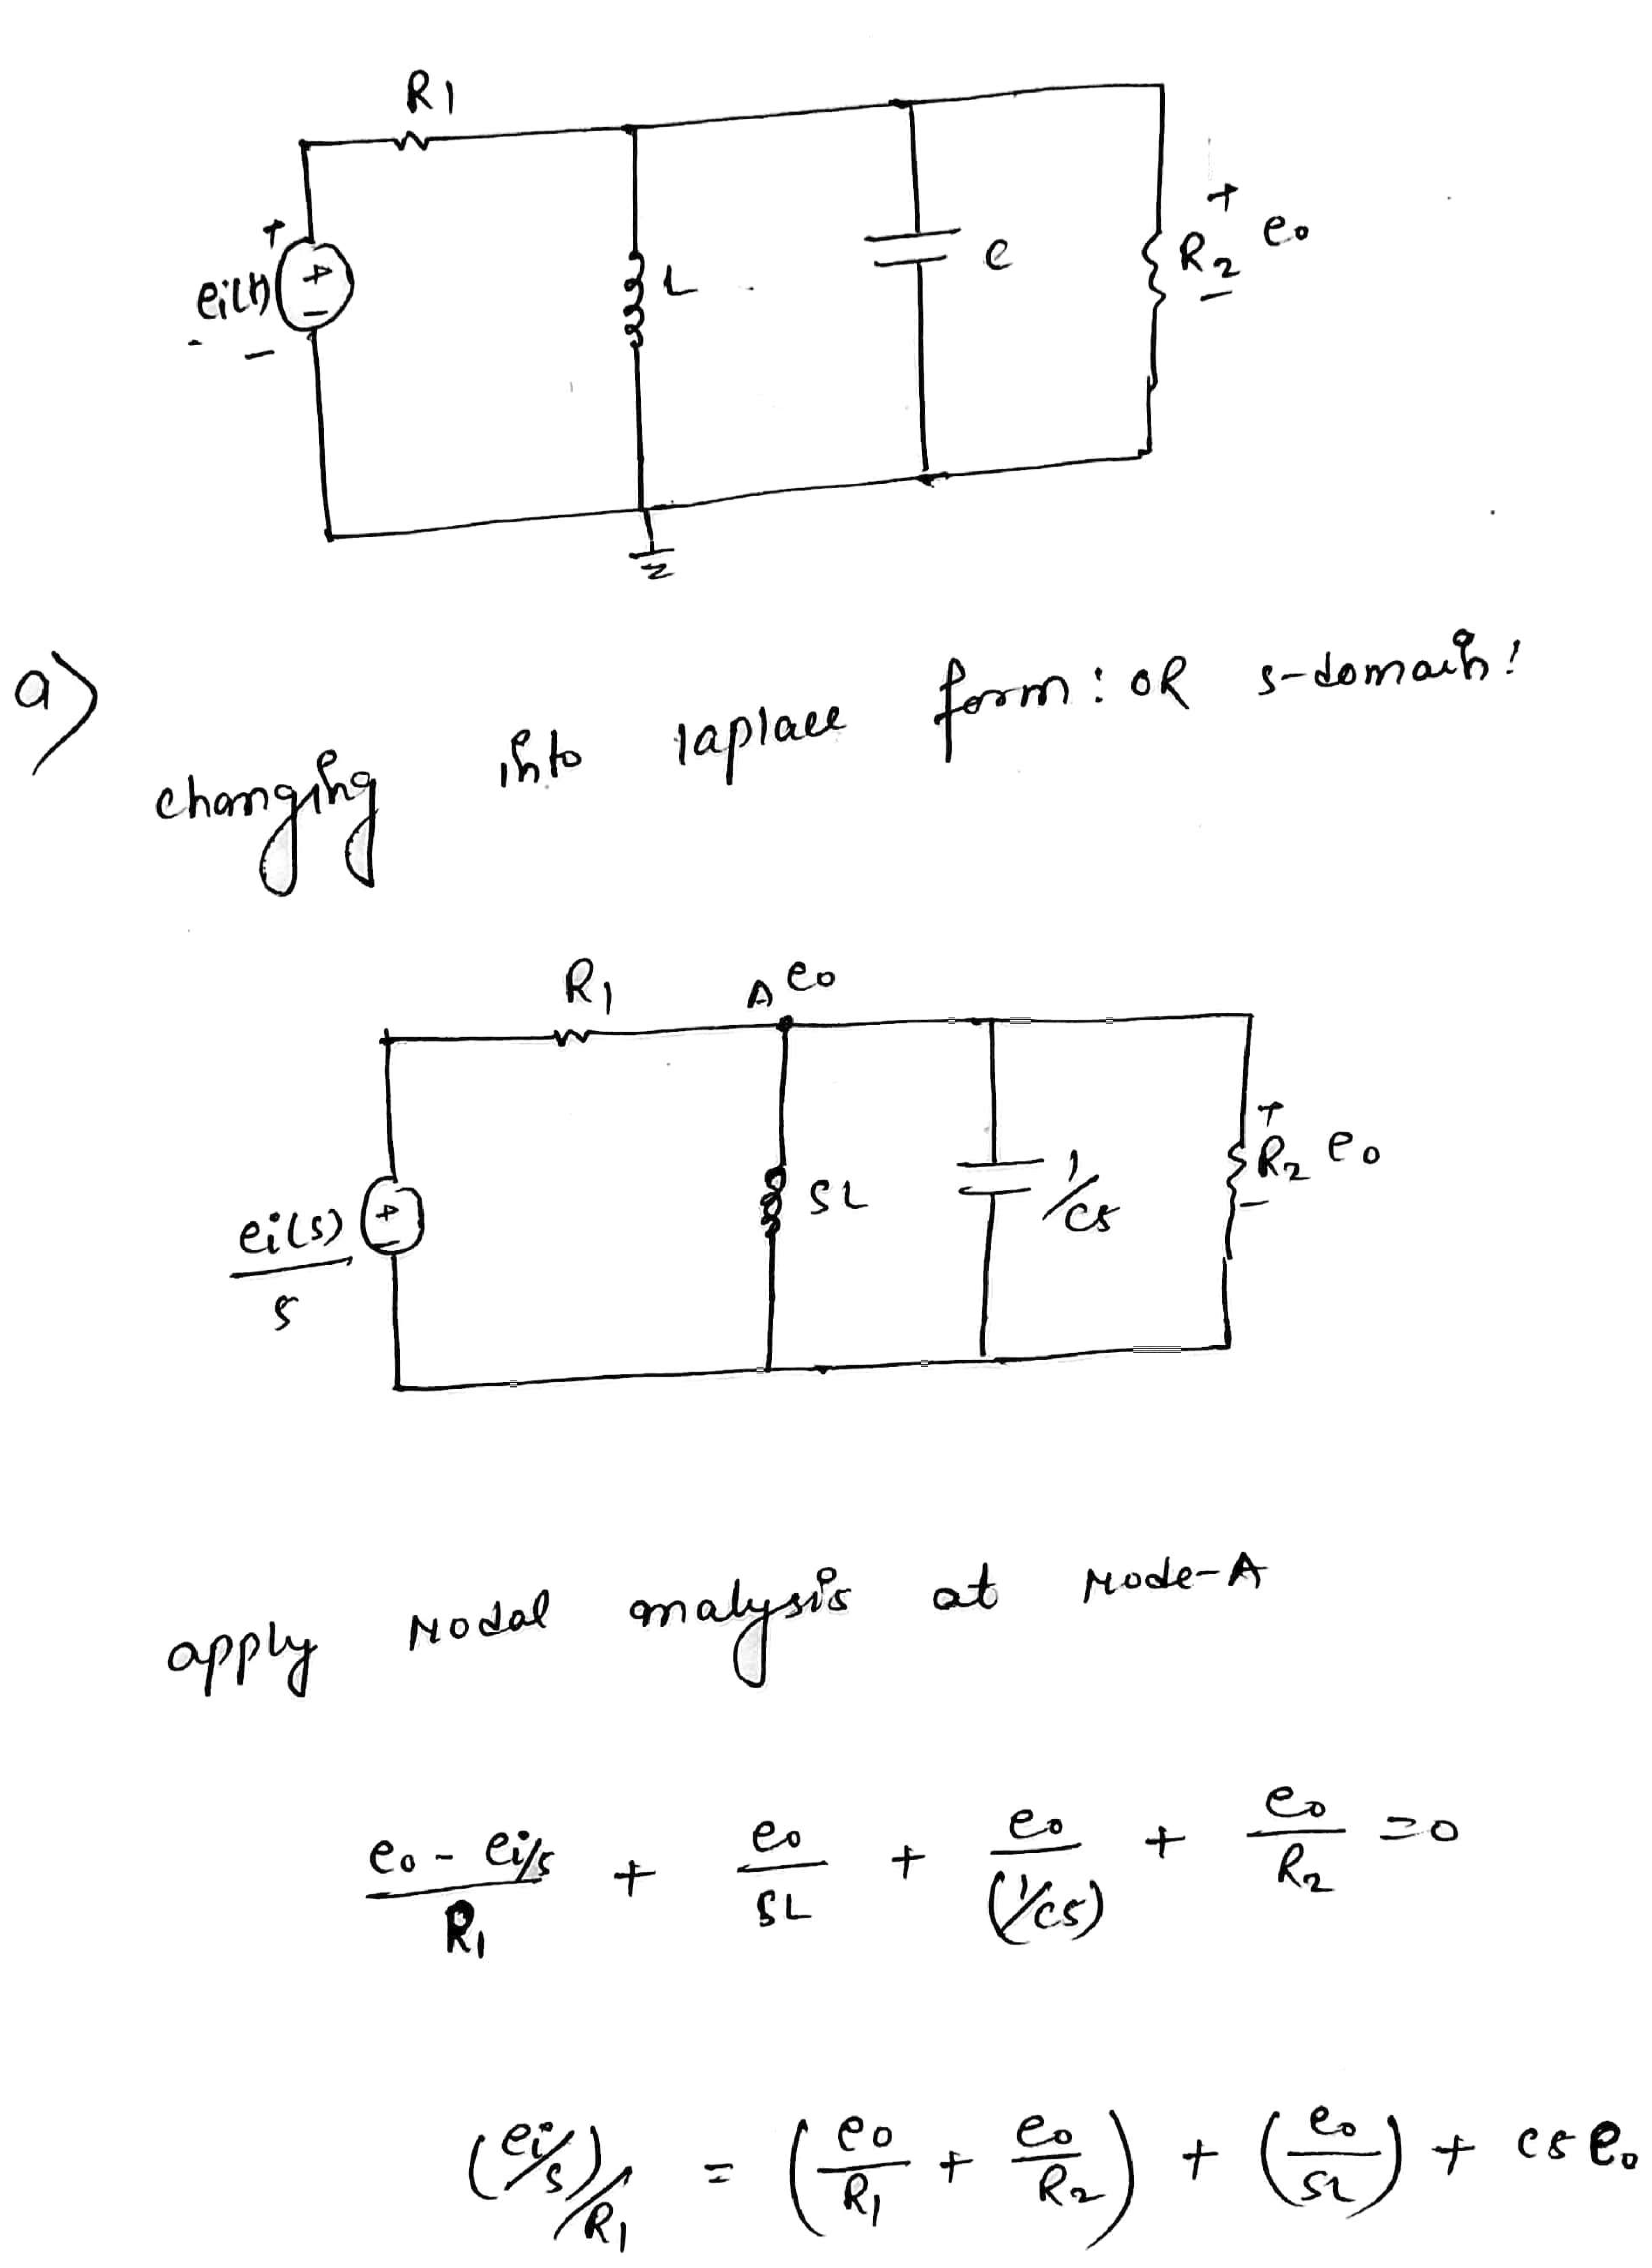 R1
+ ei(t) + - -
L
C
+ R2 - e0
a) changing into laplace form: OR s-domain:
R1 A e0
ei(s)/s + -
SL
1/cs
+ R2 - e0
apply Nodal analysis at Node-A
(e0 - ei/s)/R1 + e0/SL + e0/(1/cs) + e0/R2 = 0
(ei/s)/R1 = (e0/R1 + e0/R2) + (e0/SL) + cs e0